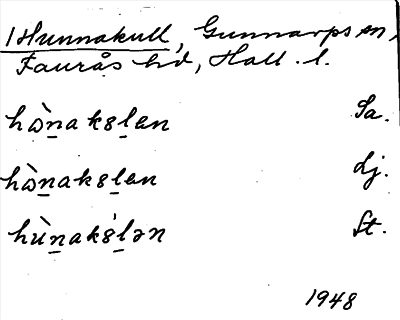 1 Hunnakull, Gunnarps sn,
Faurås hd, Hall. l.
hɷ̀n̲aksl̲en Sa.
hɷ̀n̲aksl̲en Lj.
hùn̲aksl̲ən St.
1948